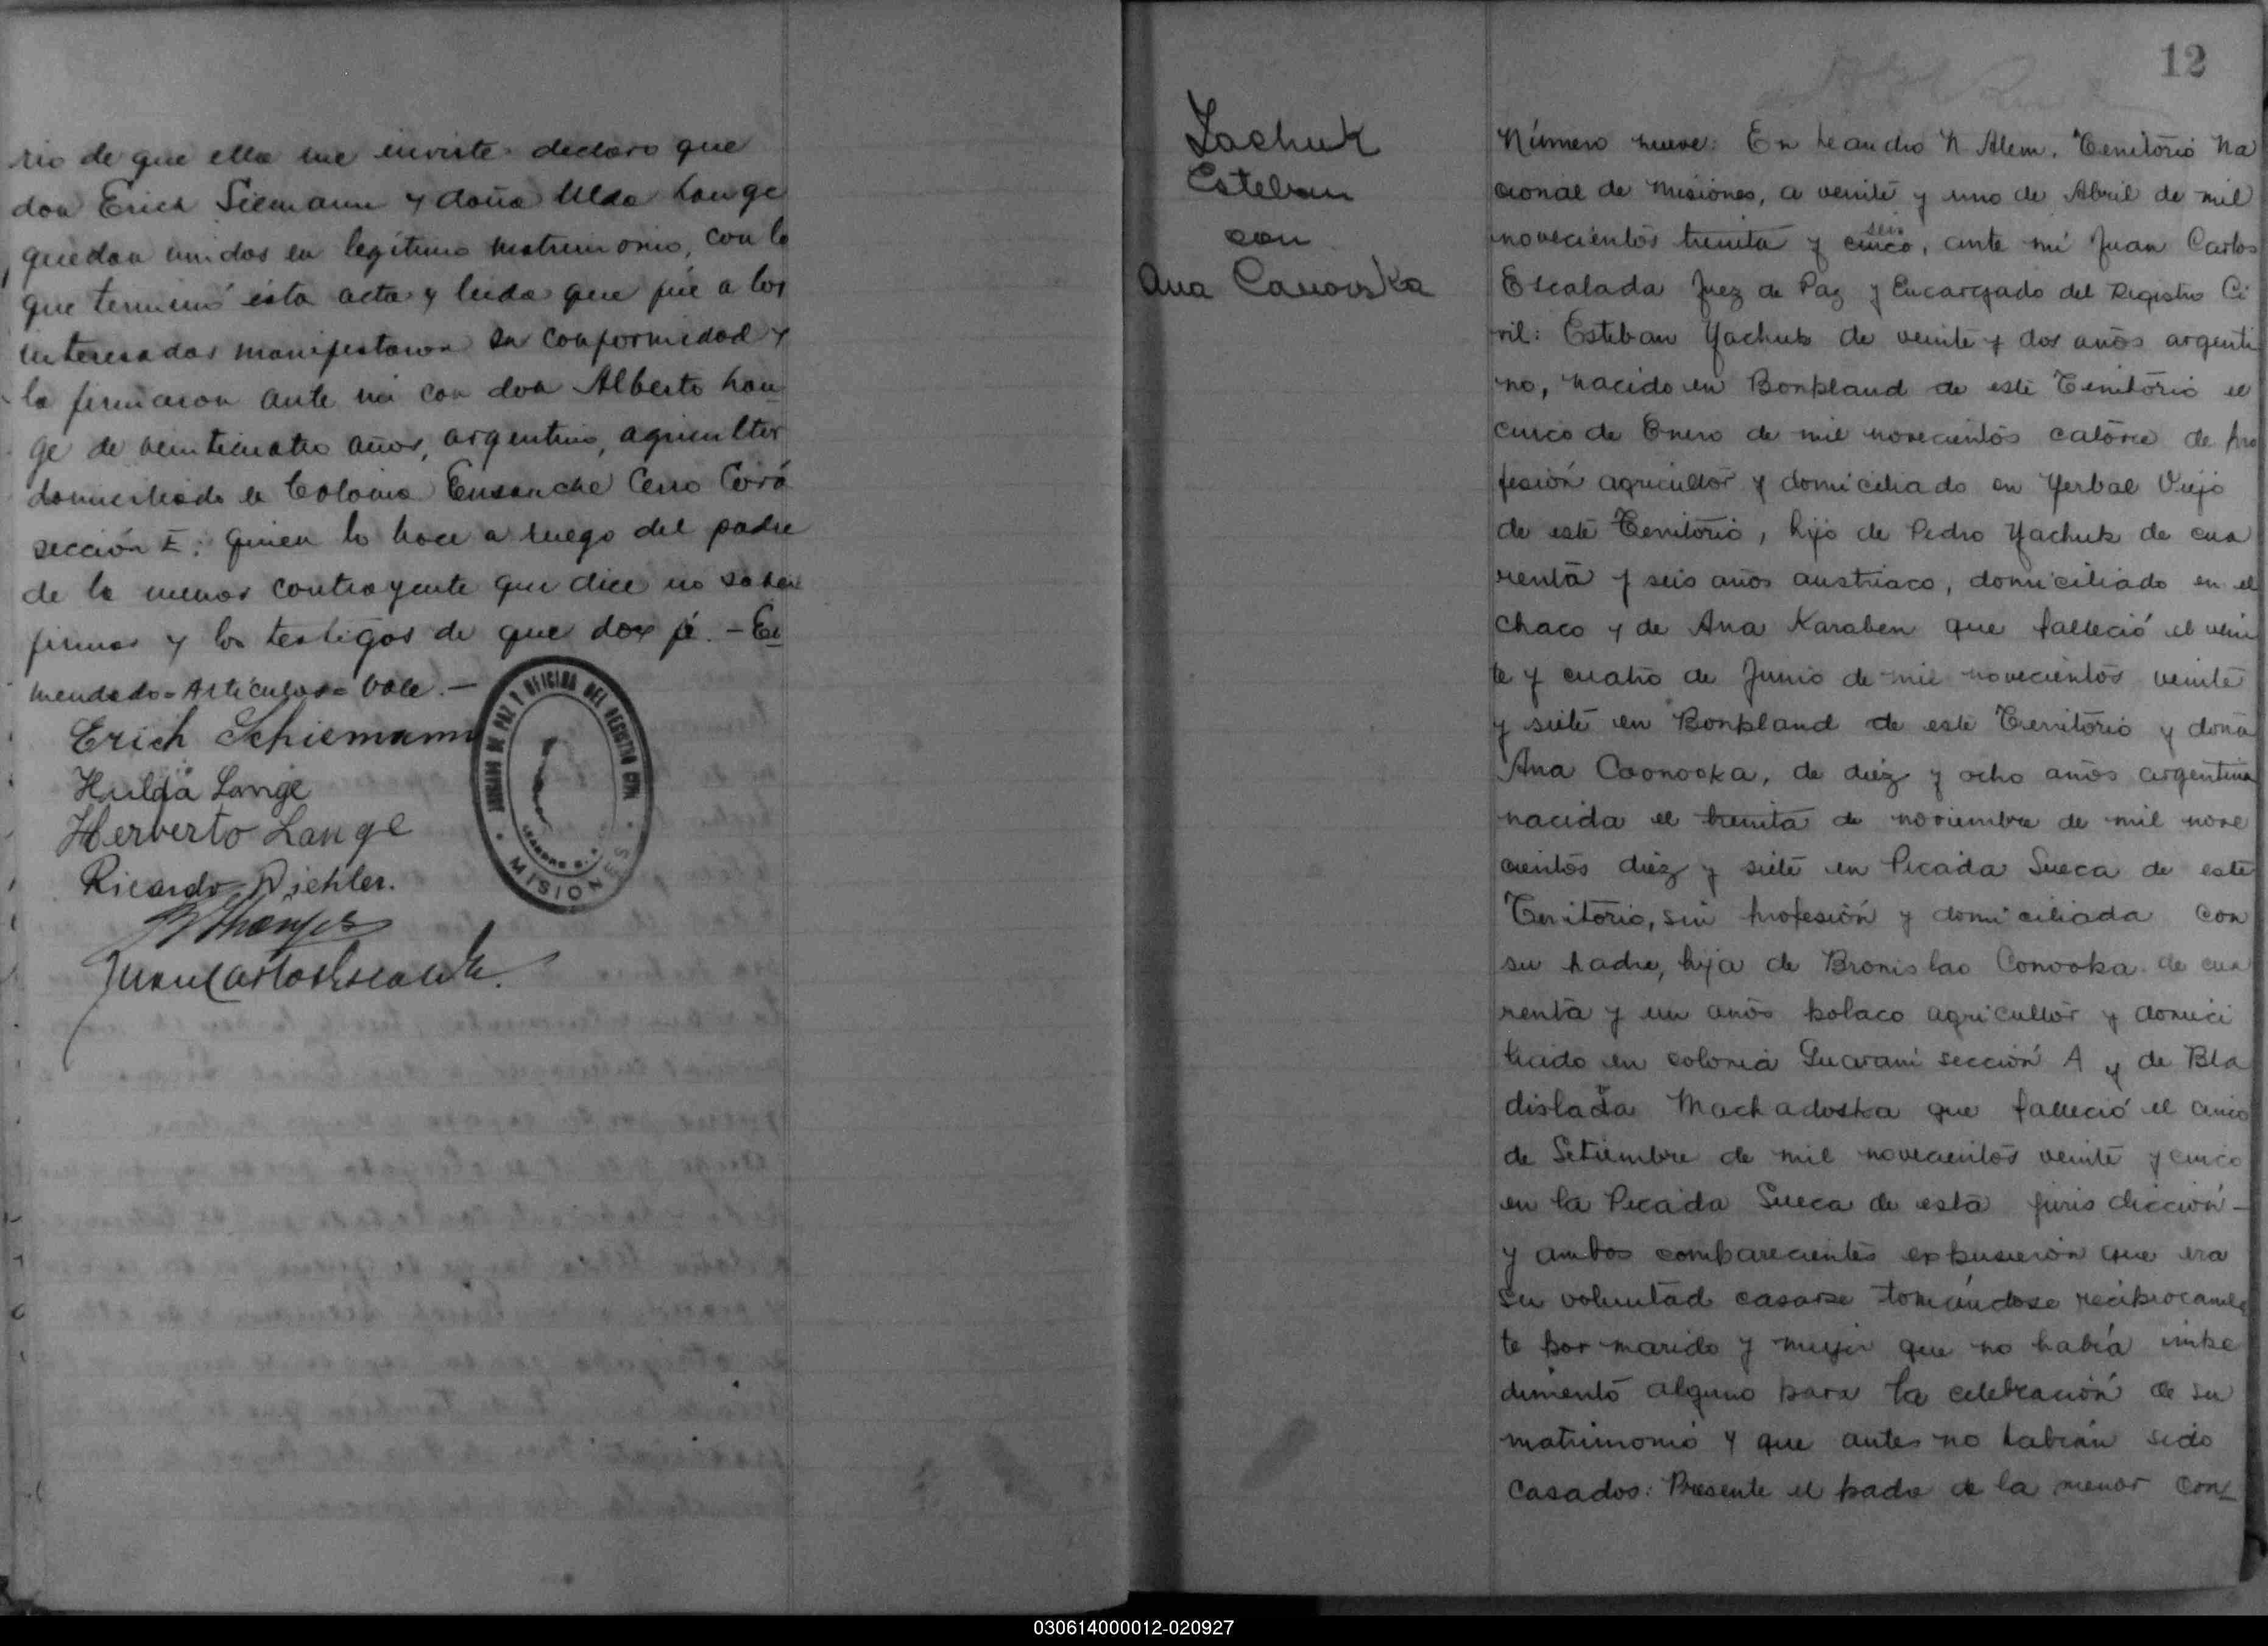 rio de que ella me inviste declaro que
don Erich Siemann y doña Ulda Lange
quedan unidos en legítimo matrimonio, con lo
que terminó ésta acta y leída que fué a los
interesados manifestaron su conformidad y
la firmaron ante mí con don Alberto Lan
ge de veinticuatro años, argentino, agricultor
domiciliado en Colonia Ensanche Cerro Corá
sección I; quien lo hace a ruego del padre
de la menor contrayente que dice no saber
firmar y los testigos de que doy fé. - En
mendado = Artículos = Vale. -
Erich Schiemann
Hulda Lange
Herverto Lange
Ricardo Piehler.
Juan Carlos Escalada
JUZGADO DE PAZ Y OFICINA DEL REGISTRO CIVIL
LEANDRO N.
MISIONES
12
Iachuk
Esteban
con
Ana Canovska
Número nueve: En Leandro N. Alem, Territorio Na
cional de Misiones, a veinte y uno de Abril de mil
seis
novecientos treinta y cinco, ante mí Juan Carlos
Escalada Juez de Paz y Encargado del Registro Ci
vil: Esteban Yachuk de veinte y dos años argenti
no, nacido en Bonpland de este Territorio el
cinco de Enero de mil novecientos catorce de pro
fesión agricultor y domiciliado en Yerbal Viejo
de este Territorio, hijo de Pedro Yachuk de cua
renta y seis años austriaco, domiciliado en el
Chaco y de Ana Karaben que falleció el vein
te y cuatro de Junio de mil novecientos veinte
y siete en Bonpland de este Territorio y doña
Ana Coonooka, de diéz y ocho años argentina
nacida el treinta de noviembre de mil nove
cientos diéz y siete en Picada Sueca de este
Territorio, sin profesión y domiciliada con
su padre, hija de Bronislao Conooka de cua
renta y un años polaco agricultor y domici
liado en colonia Guaraní sección A y de Bla
dislada Machadoska que falleció el cinco
de Setiembre de mil novecientos veinte y cinco
en la Picada Sueca de esta jurisdicción -
y ambos comparecientes expusieron que era
su voluntad casarse tomándose recíprocamen
te por marido y mujer que no había impe
dimento alguno para la celebración de su
matrimonio y que antes no habían sido
casados: Presente el padre de la menor con_
030614000012-020927